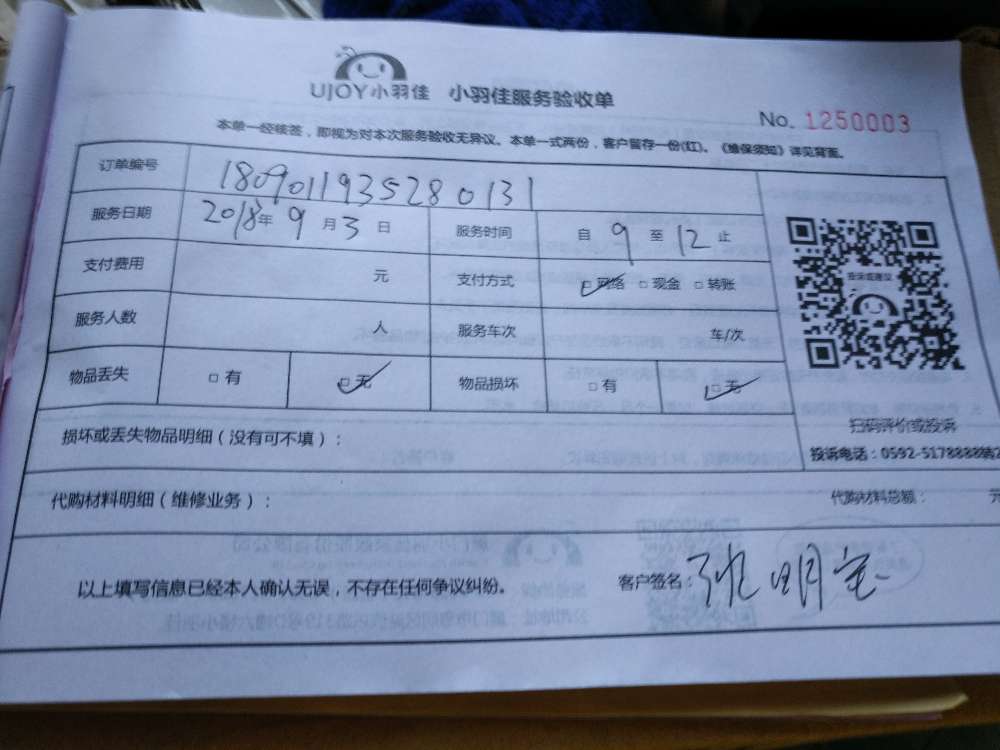 UJOY小羽佳 小羽佳服务验收单
No. 1250003
本单一经核签，即视为对本次服务验收无异议。本单一式两份，客户留存一份(红)。《维保须知》详见背面。
订单编号 1809011935280131
服务日期 2018年9月3日 服务时间 自9至12止
支付费用 元 支付方式 □网络 □现金 □转账
服务人数 人 服务车次 车/次
物品丢失 □有 □无 物品损坏 □有 □无
投诉或建议
扫码评价或投诉
投诉电话：0592-5178888转2
损坏或丢失物品明细（没有可不填）：
代购材料明细（维修业务）： 代购材料总额： 元
以上填写信息已经本人确认无误，不存在任何争议纠纷。 客户签名： 明宝